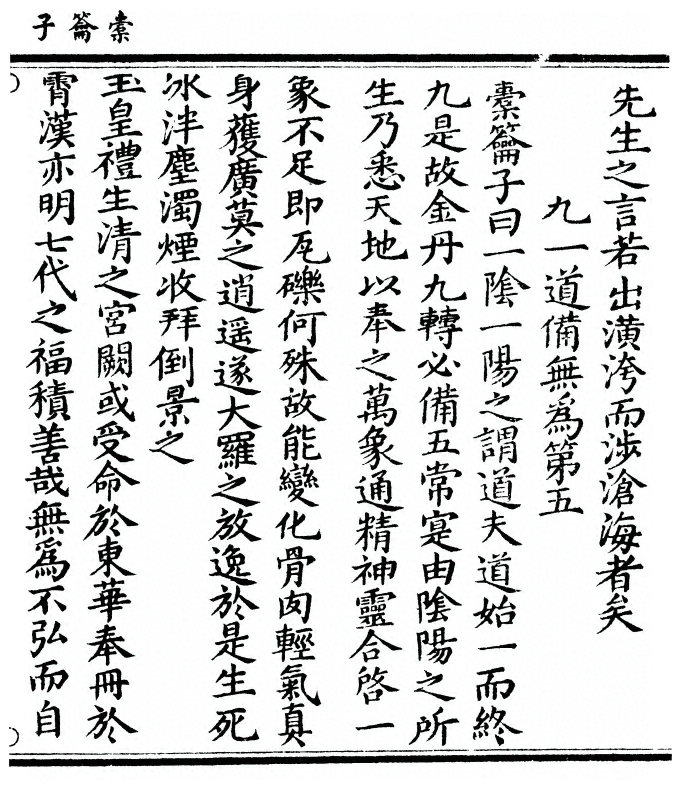 橐籥子
先生之言若出潢洿而涉滄海者矣
九一道備無爲第五
橐籥子曰一陰一陽之謂道夫道始一而終
九是故金丹九轉必備五常寔由陰陽之所
生乃悉天地以奉之萬象通精神靈合啓一
象不足即瓦礫何殊故能變化骨肉輕氣真
身獲廣莫之逍遥遂大羅之放逸於是生死
冰泮塵濁煙收拜倒景之
玉皇禮生清之宮闕或受命於東華奉冊於
霄漢亦明七代之福積善哉無爲不弘而自